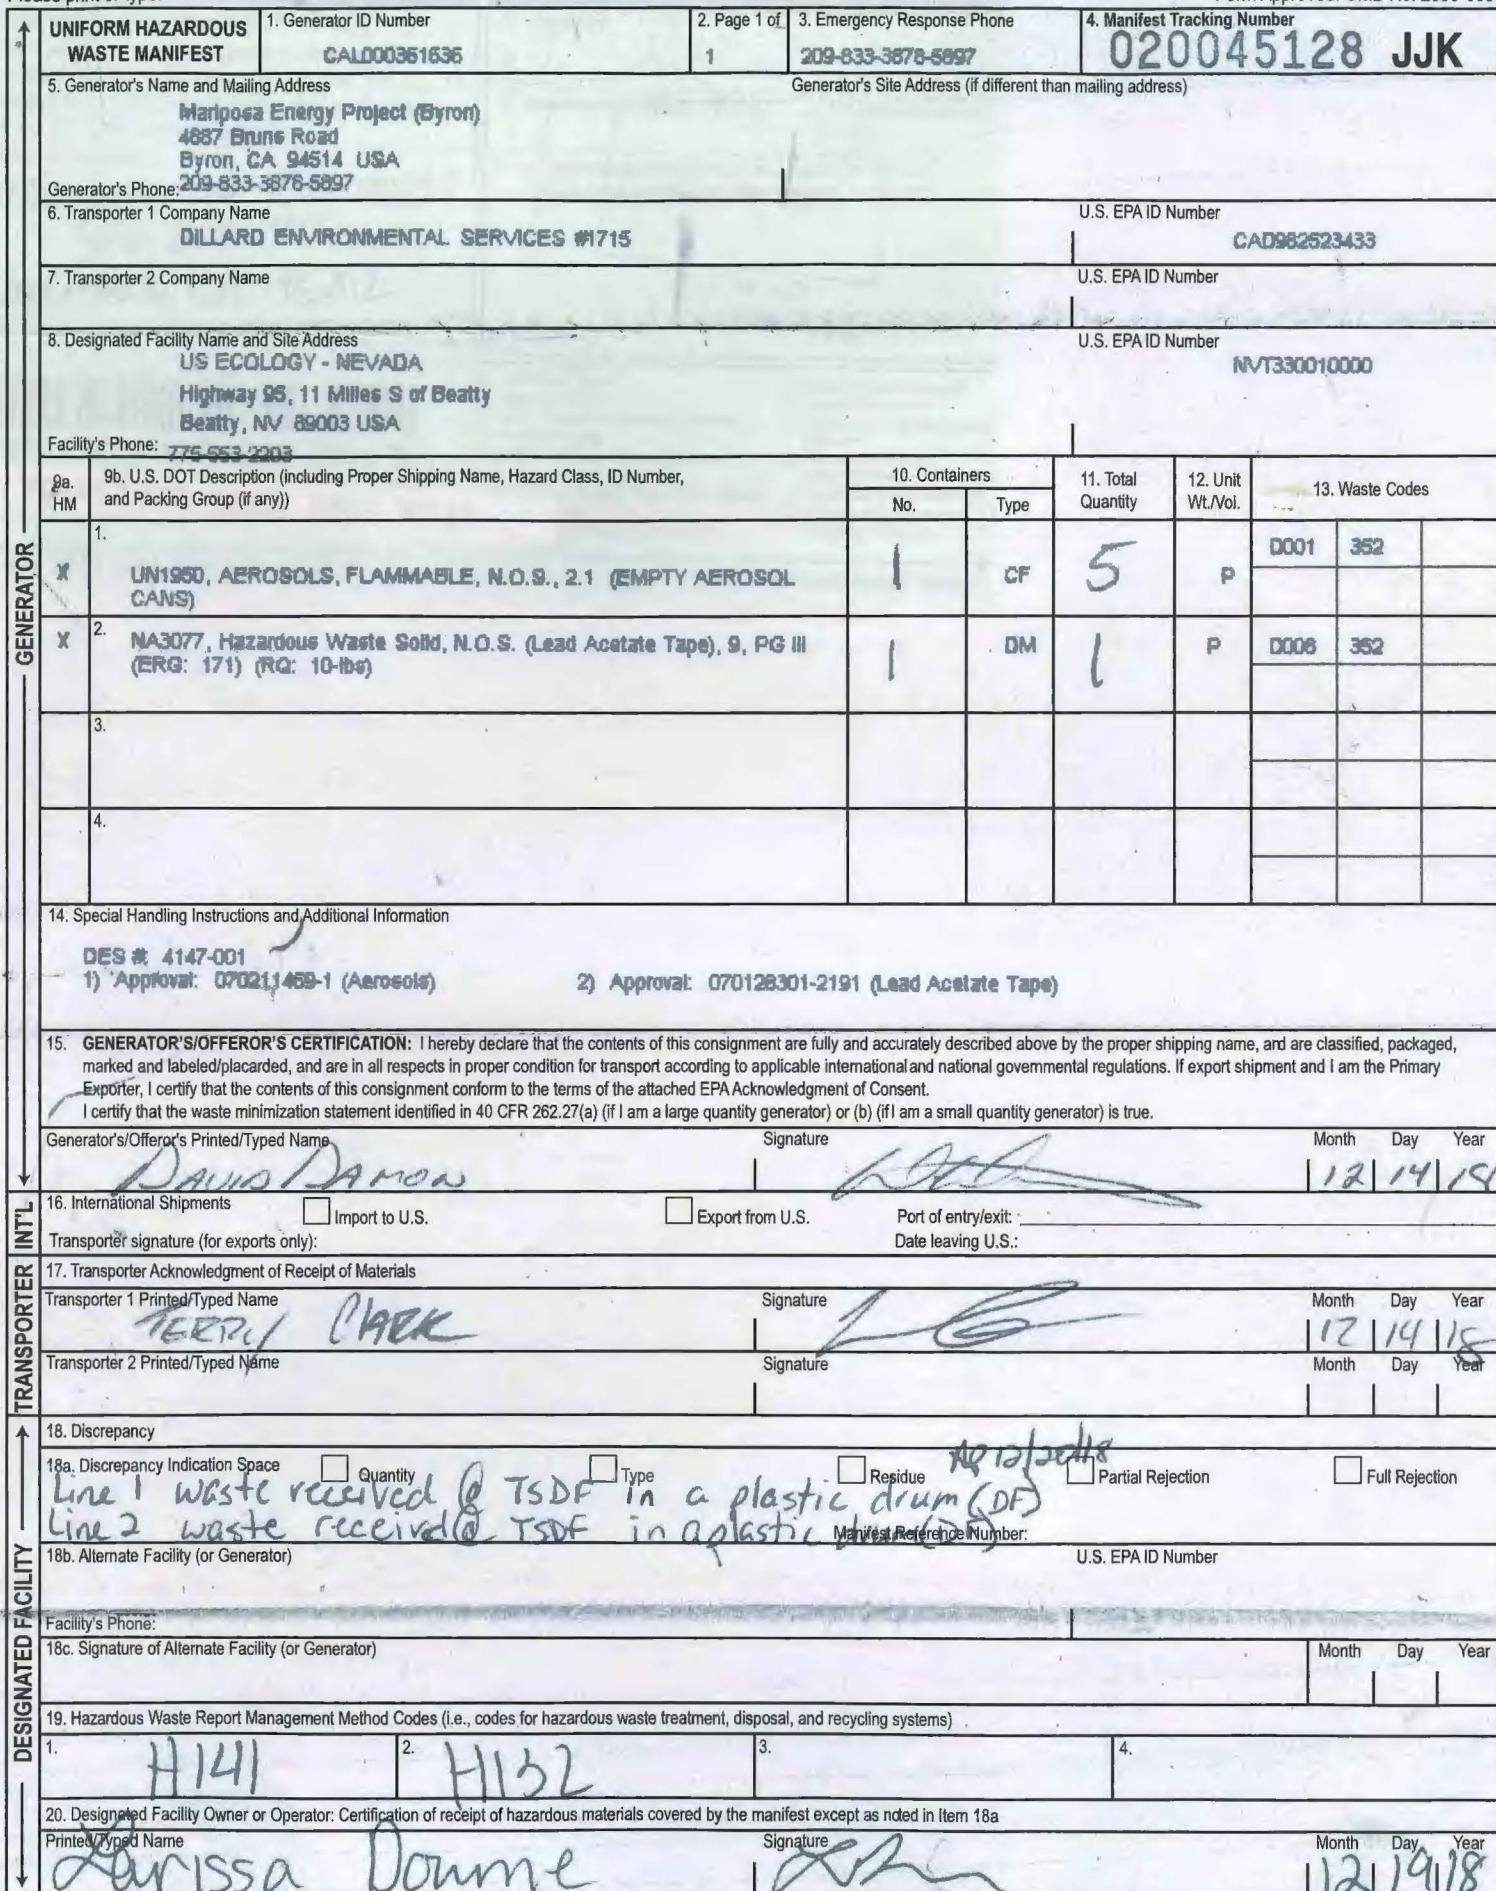 UNIFORM HAZARDOUS WASTE MANIFEST
1. Generator ID Number
CAL000351636
2. Page 1 of
1
3. Emergency Response Phone
209-833-3878-5897
4. Manifest Tracking Number
020045128 JJK
5. Generator's Name and Mailing Address
Generator's Site Address (if different than mailing address)
Mariposa Energy Project (Byron)
4887 Bruns Road
Byron, CA 94514 USA
Generator's Phone: 209-833-3878-5897
6. Transporter 1 Company Name
U.S. EPA ID Number
DILLARD ENVIRONMENTAL SERVICES #1715
CAD982523433
7. Transporter 2 Company Name
U.S. EPA ID Number
8. Designated Facility Name and Site Address
U.S. EPA ID Number
US ECOLOGY - NEVADA
NVT330010000
Highway 95, 11 Milles S of Beatty
Beatty, NV 89003 USA
Facility's Phone: 775-553-2203
9a. HM
9b. U.S. DOT Description (including Proper Shipping Name, Hazard Class, ID Number, and Packing Group (if any))
10. Containers
No.
Type
11. Total Quantity
12. Unit Wt./Vol.
13. Waste Codes
1.
X UN1950, AEROSOLS, FLAMMABLE, N.O.S., 2.1 (EMPTY AEROSOL CANS) 1 CF 5 P D001 352
2.
X NA3077, Hazardous Waste Solid, N.O.S. (Lead Acetate Tape), 9, PG III (ERG: 171) (RQ: 10-lbs) 1 DM 1 P D008 352
3.
4.
14. Special Handling Instructions and Additional Information
DES #: 4147-001
1) Approval: 070211469-1 (Aerosols) 2) Approval: 070128301-2191 (Lead Acetate Tape)
15. GENERATOR'S/OFFEROR'S CERTIFICATION: I hereby declare that the contents of this consignment are fully and accurately described above by the proper shipping name, and are classified, packaged,
marked and labeled/placarded, and are in all respects in proper condition for transport according to applicable international and national governmental regulations. If export shipment and I am the Primary
Exporter, I certify that the contents of this consignment conform to the terms of the attached EPA Acknowledgment of Consent.
I certify that the waste minimization statement identified in 40 CFR 262.27(a) (if I am a large quantity generator) or (b) (if I am a small quantity generator) is true.
Generator's/Offeror's Printed/Typed Name
Signature
Month Day Year
DAVID DAMON
12 14 18
16. International Shipments
Import to U.S.
Export from U.S.
Port of entry/exit:
Transporter signature (for exports only):
Date leaving U.S.:
17. Transporter Acknowledgment of Receipt of Materials
Transporter 1 Printed/Typed Name
Signature
Month Day Year
TERRY CLARK
12 14 18
Transporter 2 Printed/Typed Name
Signature
Month Day Year
18. Discrepancy
18a. Discrepancy Indication Space
Quantity
Type
Residue
Partial Rejection
Full Rejection
12/20/18
Line 1 waste received @ TSDF in a plastic drum (DF)
Line 2 waste received @ TSDF in a plastic drum (DF)
Manifest Reference Number:
18b. Alternate Facility (or Generator)
U.S. EPA ID Number
Facility's Phone:
18c. Signature of Alternate Facility (or Generator)
Month Day Year
19. Hazardous Waste Report Management Method Codes (i.e., codes for hazardous waste treatment, disposal, and recycling systems)
1. H141
2. H132
3.
4.
20. Designated Facility Owner or Operator: Certification of receipt of hazardous materials covered by the manifest except as noted in Item 18a
Printed/Typed Name
Signature
Month Day Year
Larissa
12 19 18
GENERATOR
INT'L
TRANSPORTER
DESIGNATED FACILITY